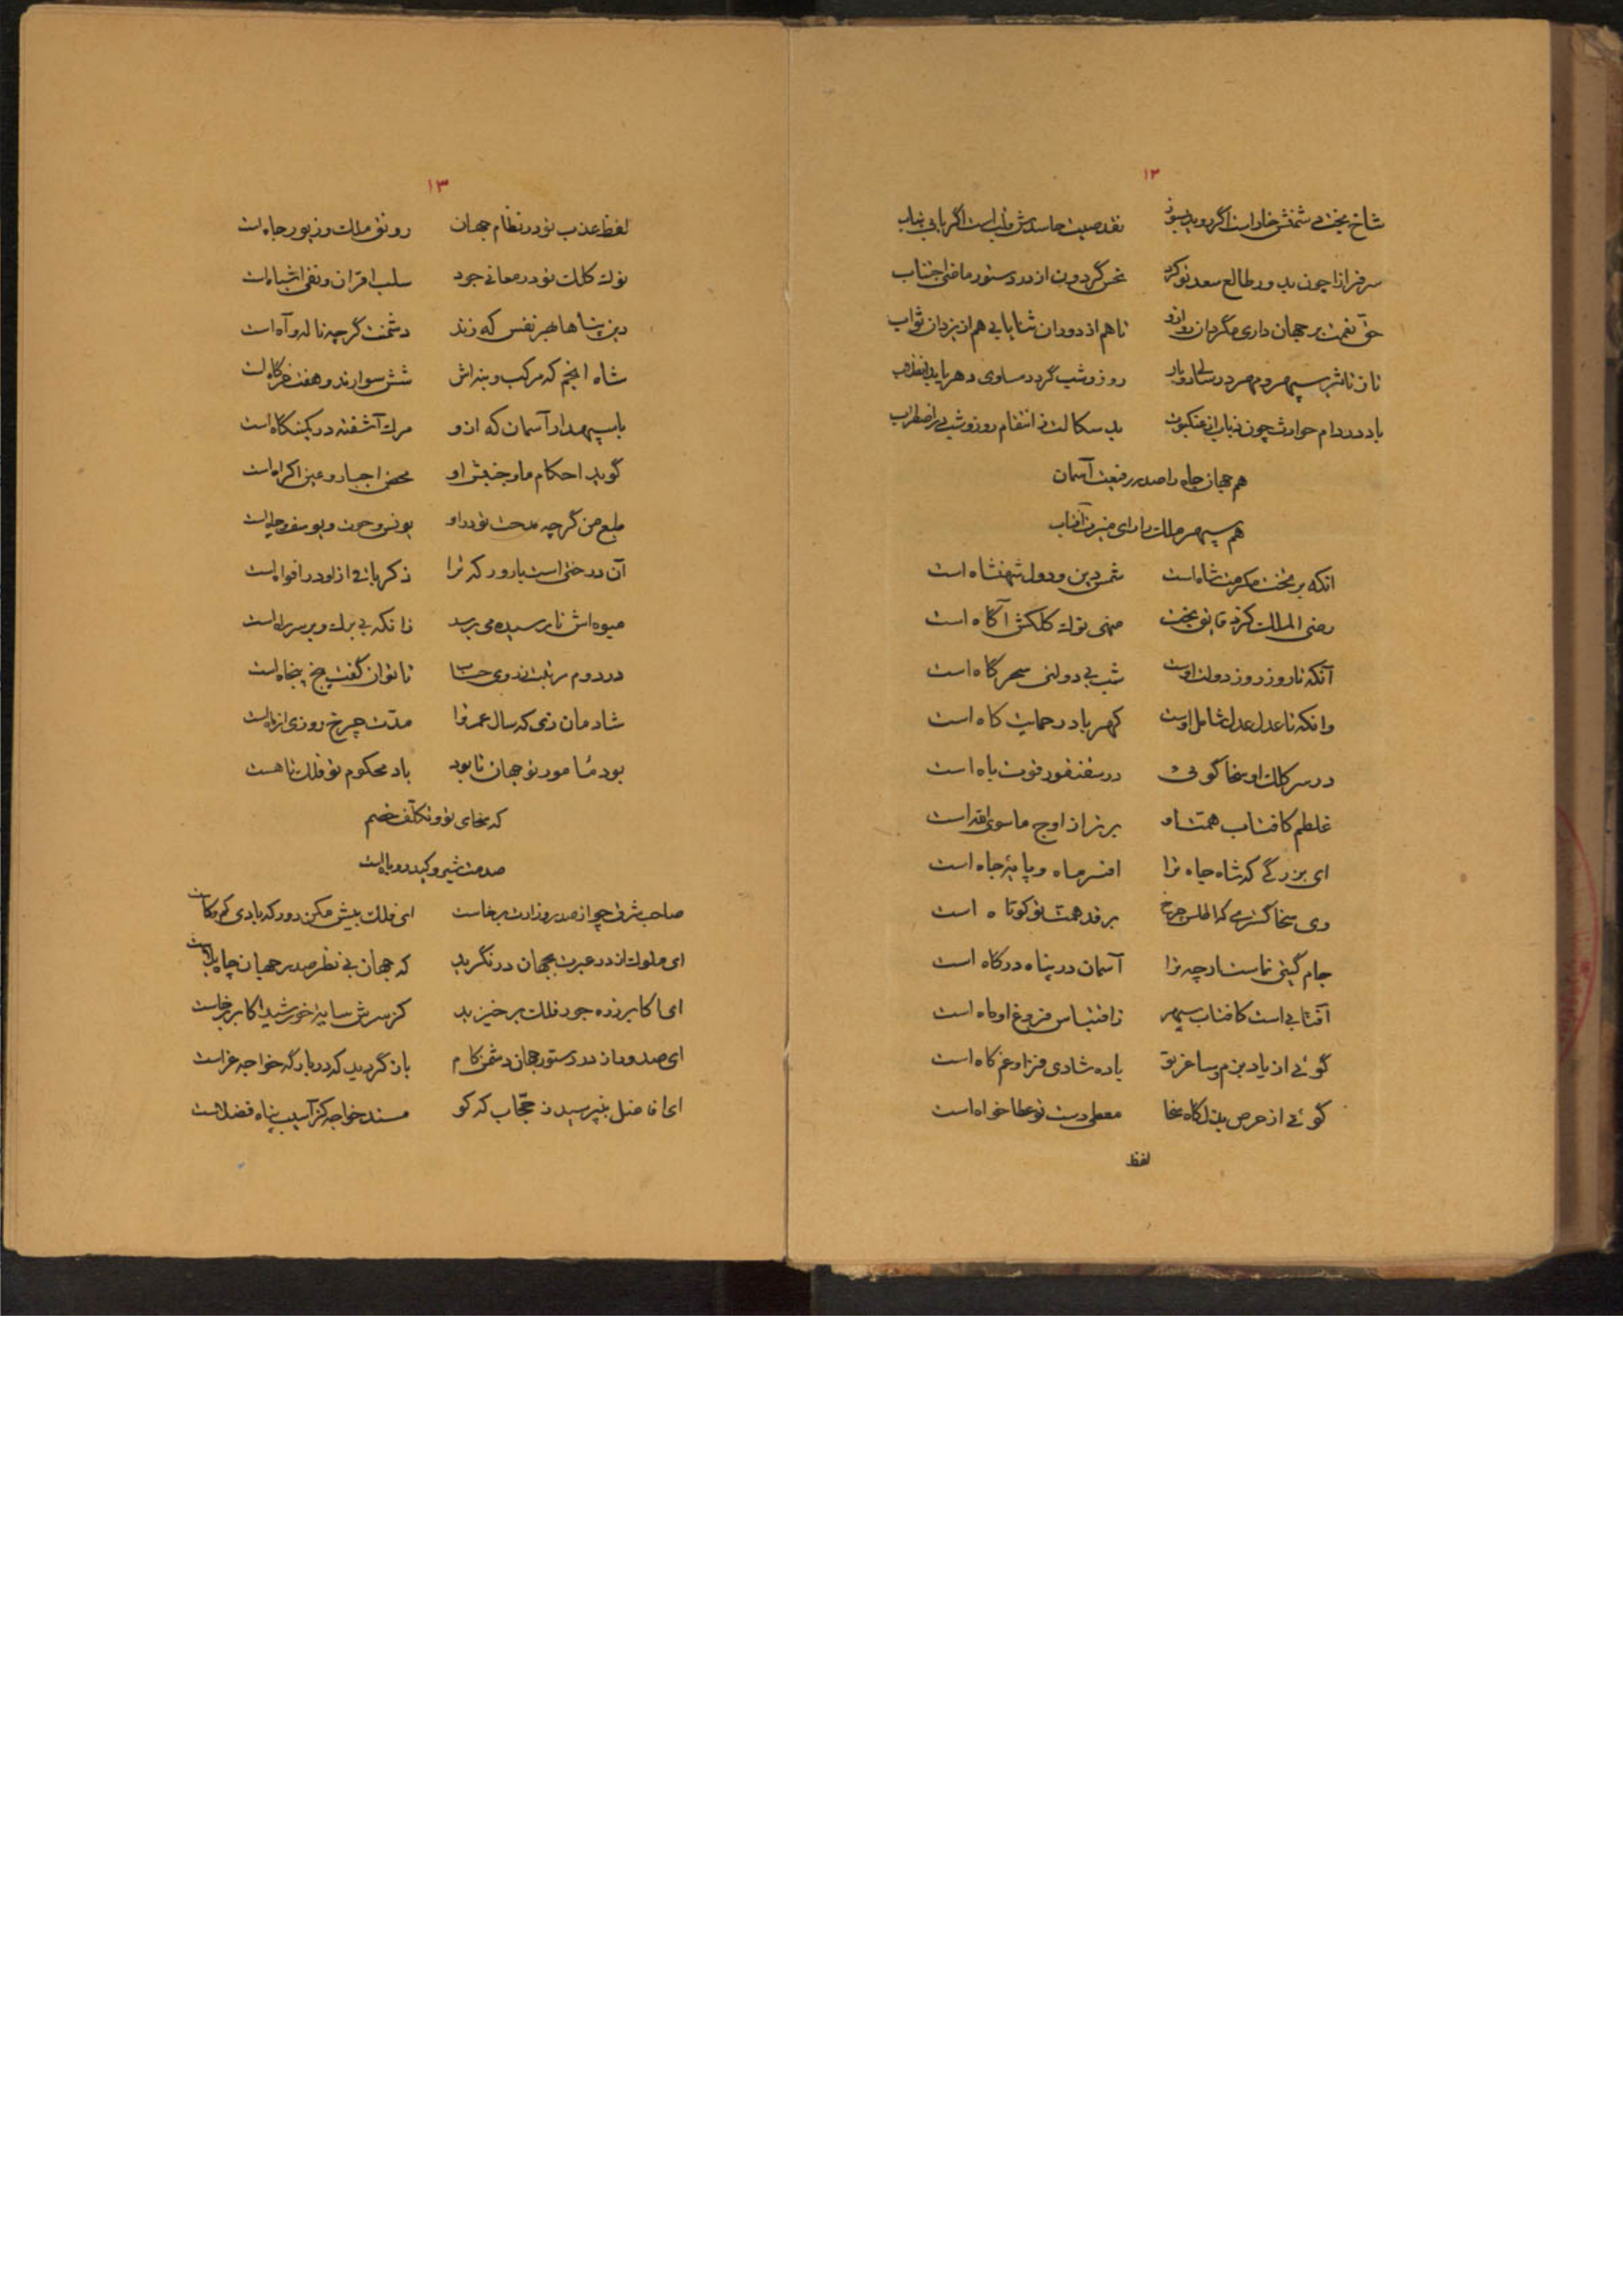 ۱۲
شاخ بخت دشمنش خار است اگر روید بسوز نقد صیت حاسدش قلب است اگر یابی نیاب
سرفرازا چون بدور طالع سعد تو کرد نحس گردون از در دستور ماضی اجتناب
حق نعمت بر جهان داری مگردان رو ازو تا هم از دوران ثنا یابی هم از یزدان ثواب
تا ز تاثیر سپهر و مهر در سالی دو بار روز و شب گردد مساوی دهر یابد
باد در دام حوادث چون ذباب از عنکبوت بد سکالت ز انتقام روز و شب در اضطراب
هم جهان جاه را صدر رفیعت آسمان
هم سپهر ملک را رای منیرت آفتاب
انکه بر تخت مکرمت شاه است شمس دین و دول شهنشاه است
رضی الملک کز دقایق بخت منهی نوک کلکش آگاه است
آنکه تا روز روز دولت اوست شب بی دولتی سحرگاه است
وانکه تا عدل عدل شامل اوست کهربا در حمایت کاه است
در سر کلک او سخا گوئی در سقنقور قوت باه است
غلطم کافتاب همت او برتر از اوج ماسوی الله است
ای بزرگی که شاه جاه ترا افسر ماه و پایهٔ جاه است
وی سخا گستری که اطلس چرخ بر قد همت تو کوتاه است
جام گیتی نماست ارچه ترا آسمان در پناه درگاه است
آفتابی است کافتاب سپهر ز اقتباس فروغ او ماه است
گوئی از یاد بزم و ساغر تو باده شادی فزا و غم کاه است
گوئی از حرص بذل گاه سخا معطی دست تو عطا خواه است
لفظ
۱۳
لفظ عذب تو در نظام جهان رونق ملک و زیور جاه است
نوک کلک تو در معانی جود سلب اقران و نفی اشباه است
دین پناها بهر نفس که زند دشمنت گرچه ناله و آه است
شاه انجم که مرکب و بنه اش شش سوارند و هفت خرگاه است
با سپهدار آسمان که ازو مرگ آشفته در کمینگاه است
گوید احکام ما و جنبش او محض اجبار و عین اکراه است
طبع من گرچه مدحت تو در او یونس و حوت و یوسف و چاه است
آن درختی است بارور که ترا ذکر باقی ازاو در افواه است
میوه اش نارسیده می برسد زانکه بی برگ و بر سر راه است
در دوم رتبت ز روی حساب تا توان گفت پنج پنجاه است
شادمان زی که سال عمر ترا مدت چرخ روزی از ماه است
بود مأمور تو جهان تا بود باد محکوم تو فلک تا هست
که سخای تو و تکلف خصم
صدمت شیر و کید روباه است
صاحب شرق چو از صدر وزارت برخاست ای فلک بیش مکن دور که بادی کم و کاست
ای ملوک از در عبرت بجهان در نگرید که جهان بی نظر صدر جهان
ای اکابر زده جور فلک برخیزید کز سرش سایهٔ خورشید اکابر برخاست
ای صدور از در دستور جهان دشمن کام باز گردید که در بارگه خواجه عزاست
ای افاضل بنپرسید ز حجاب که کو مسند خواجه کز آسیب پناه فضلاست